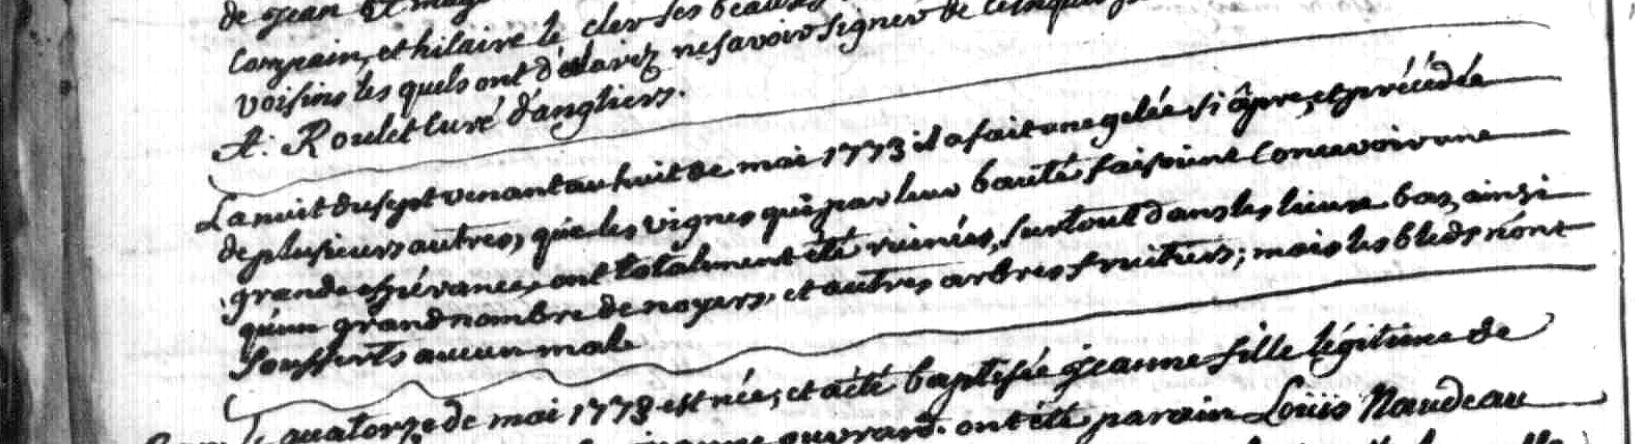 de jean
et hilaire le clerc ses beaux
voisins les quels ont déclarez ne savoir signer de ce
A. Roulet curé d'angliers.
La nuit du sept venant au huit de mai 1773 il a fait une gelée si âpre, et précédée
de plusieurs autres, que les vignes qui par leur bauté faisoient concevoir une
grande espérance, ont totalement été ruinées, surtout dans les lieux bas, ainsi
qu'un grand nombre de noyers, et autres arbres fruitiers; mais les bleds n'ont
soufferts aucun mal.
Le quatorze de mai 1773 est née, et a été baptisée jeanne fille légitime de
ont été parain Loüis Naudeau